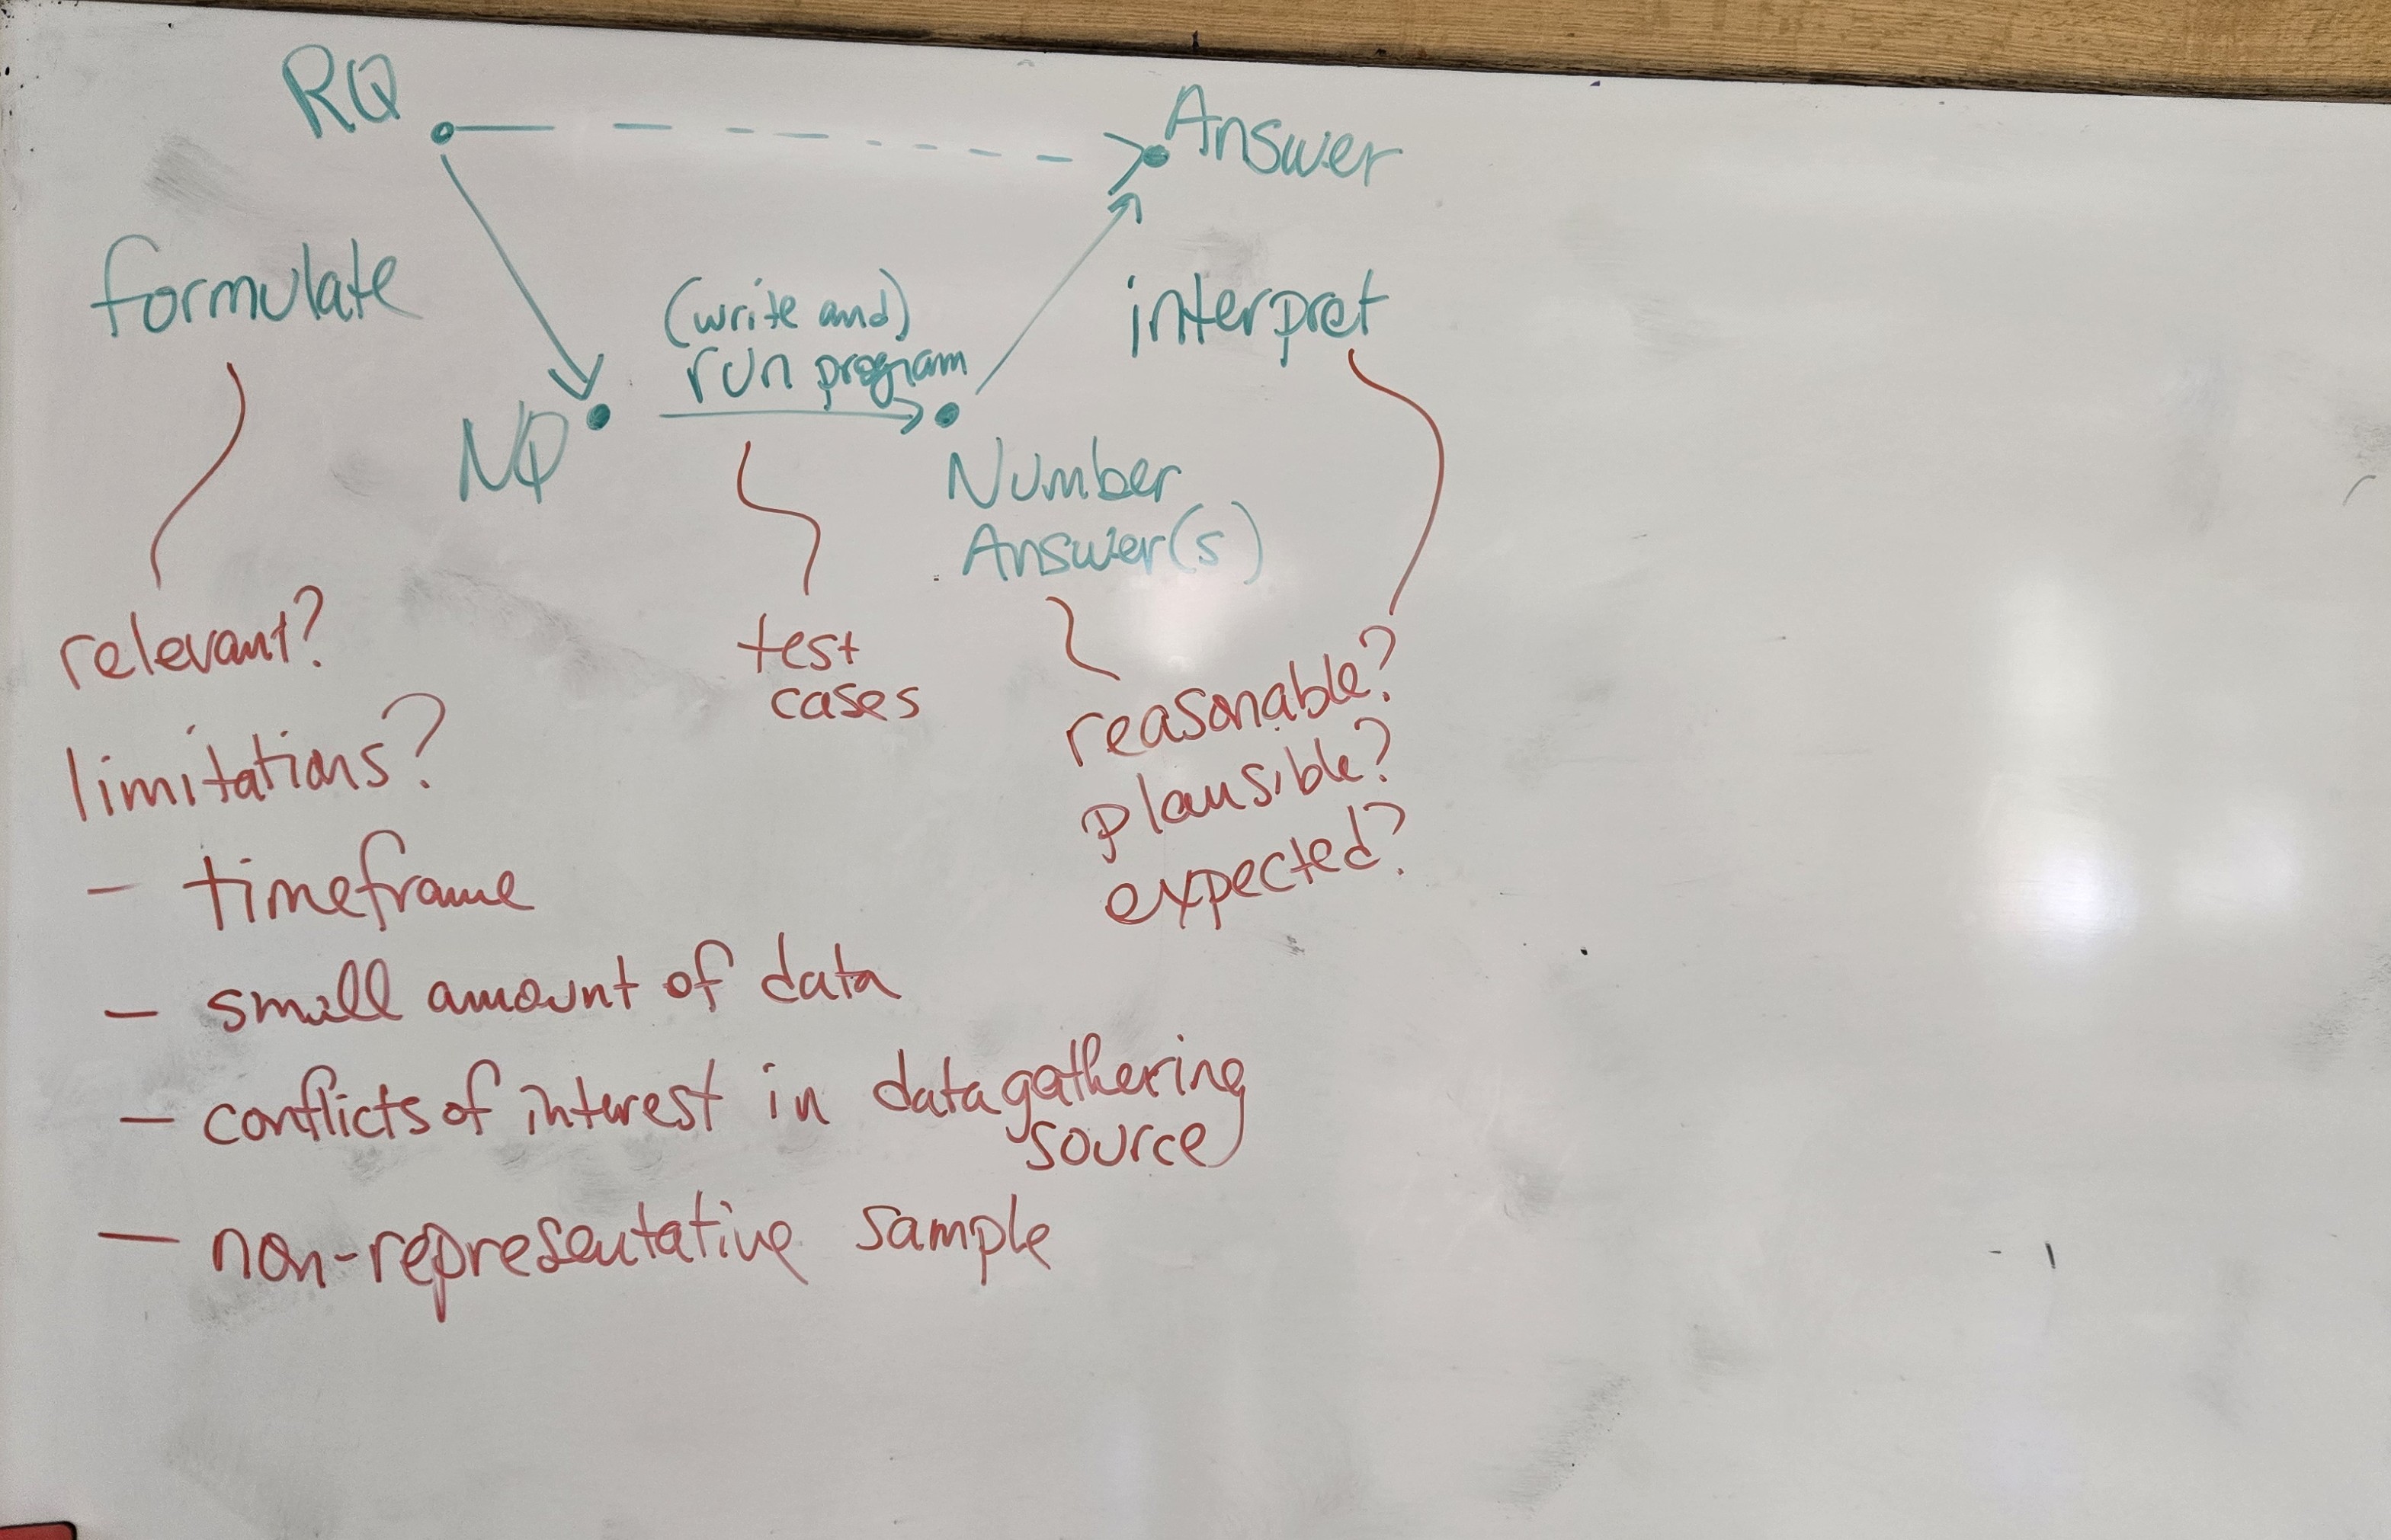 RQ
Answer
formulate
(write and)
run program
interpret
NQ
Number
Answer(s)
relevant?
test
cases
reasonable?
plausible?
expected?
limitations?
- timeframe
- small amount of data
- conflicts of interest in data gathering
source
- non-representative sample